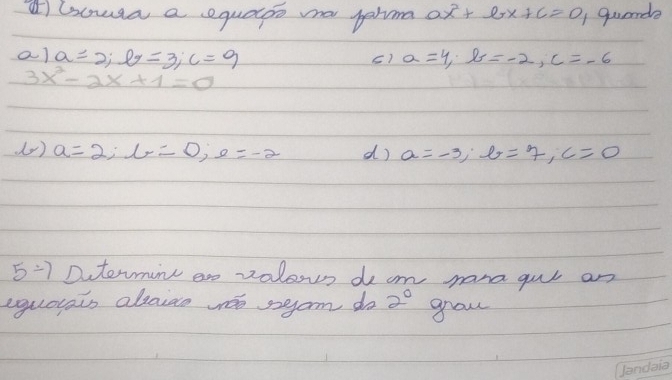 Escreva a equação na forma ax² + bx + c = 0, quando
a) a = 2; b = 3; c = 9
c) a = 4; b = -2, c = -6
3x² - 2x + 1 = 0
b) a = 2; b = 0; c = -2
d) a = -3; b = 7; c = 0
5-) Determine os valores de m para que as
equações abaixo não sejam do 2° grau
Jandaia